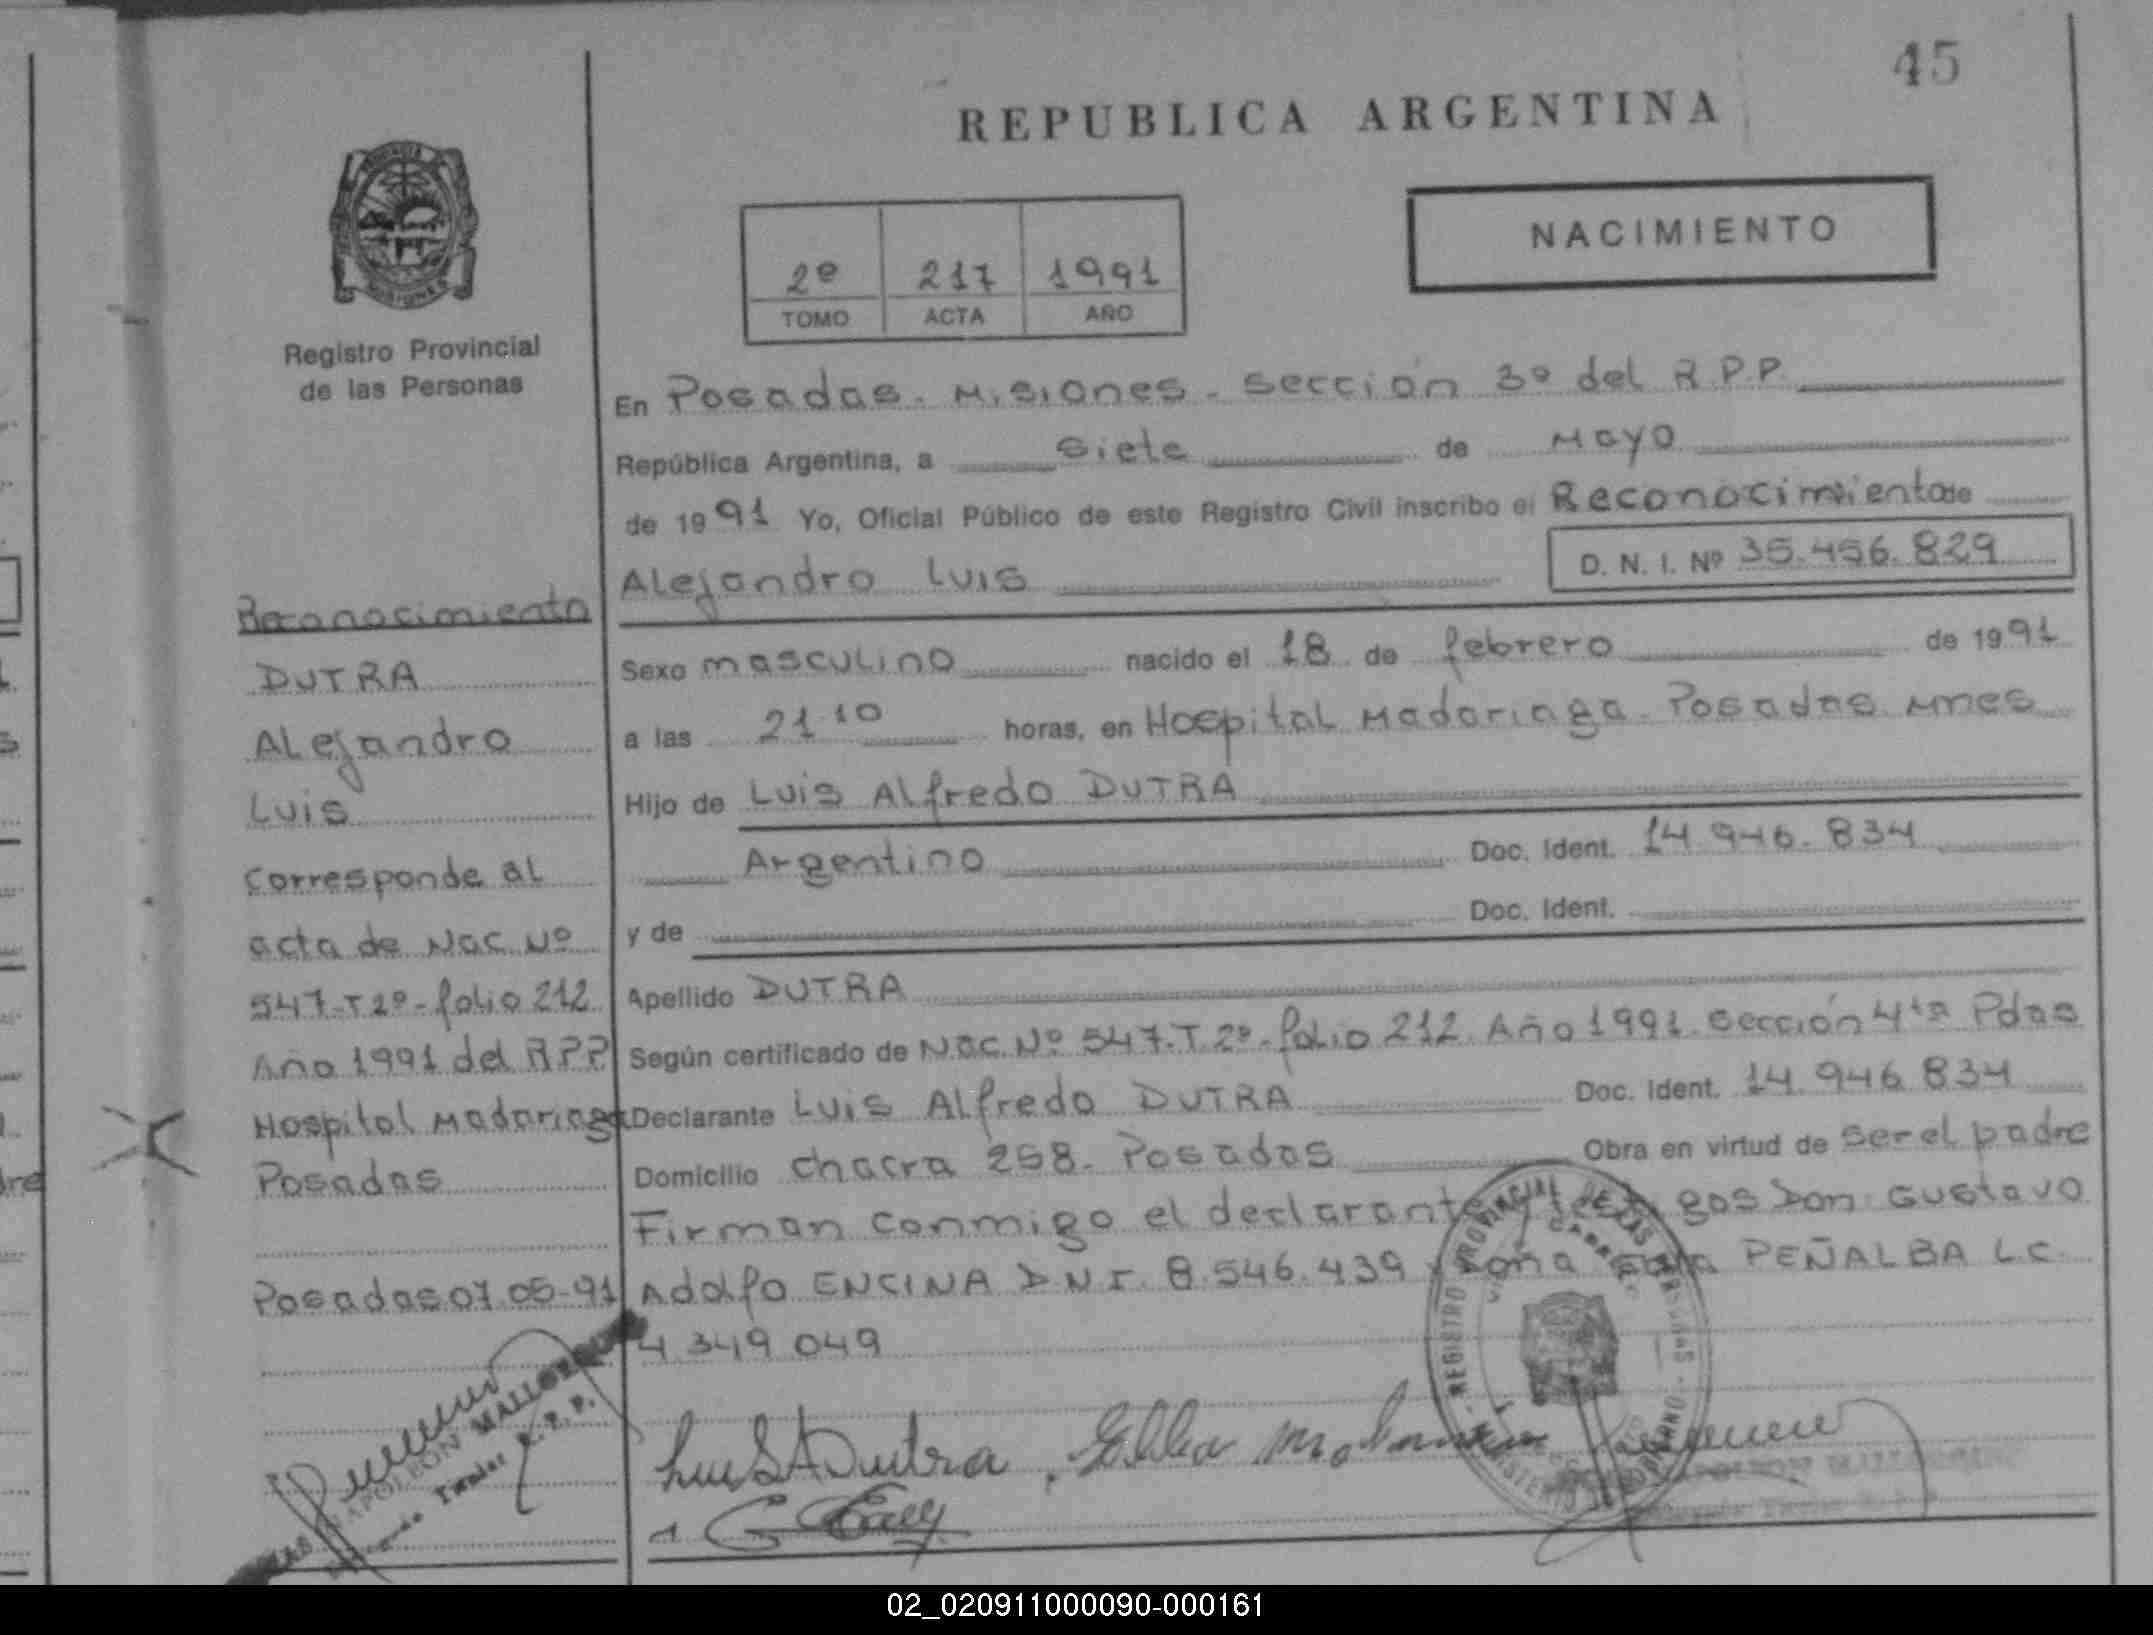 45
REPUBLICA ARGENTINA
NACIMIENTO
2º 217 1991
TOMO ACTA AÑO
Registro Provincial
de las Personas
En Posadas. Misiones. Sección 3º del R.P.P.
República Argentina, a siete de Mayo
de 1991 Yo, Oficial Público de este Registro Civil inscribo el Reconocimiento de
Alejandro Luis D. N. I. Nº 35.456.829
Sexo masculino nacido el 18 de febrero de 1991
a las 21.10 horas, en Hospital Madariaga. Posadas. Mnes
Hijo de Luis Alfredo DUTRA
Argentino Doc. Ident. 14.946.834
y de Doc. Ident.
Apellido DUTRA
Según certificado de Nac. Nº 547. T. 2º. folio 212. Año 1991. Sección 4ta Pdas
Declarante Luis Alfredo DUTRA Doc. Ident. 14.946.834
Domicilio Chacra 258. Posadas Obra en virtud de ser el padre
Firman conmigo el declarante gos Don Gustavo
Adolfo ENCINA D.N.I. 8.546.439 y Doña PEÑALBA L.C.
4.349.049
Reconocimiento
DUTRA
Alejandro
Luis
Corresponde al
acta de Nac. Nº
547-T 2º-folio 212
Año 1991 del RPP
Hospital Madariaga
Posadas
Posadas 07.05-91
NAPOLEON MALLOR
R. P. P.
REGISTRO PROVINCIAL DE LAS PERSONAS
Luis A Dutra
02_020911000090-000161